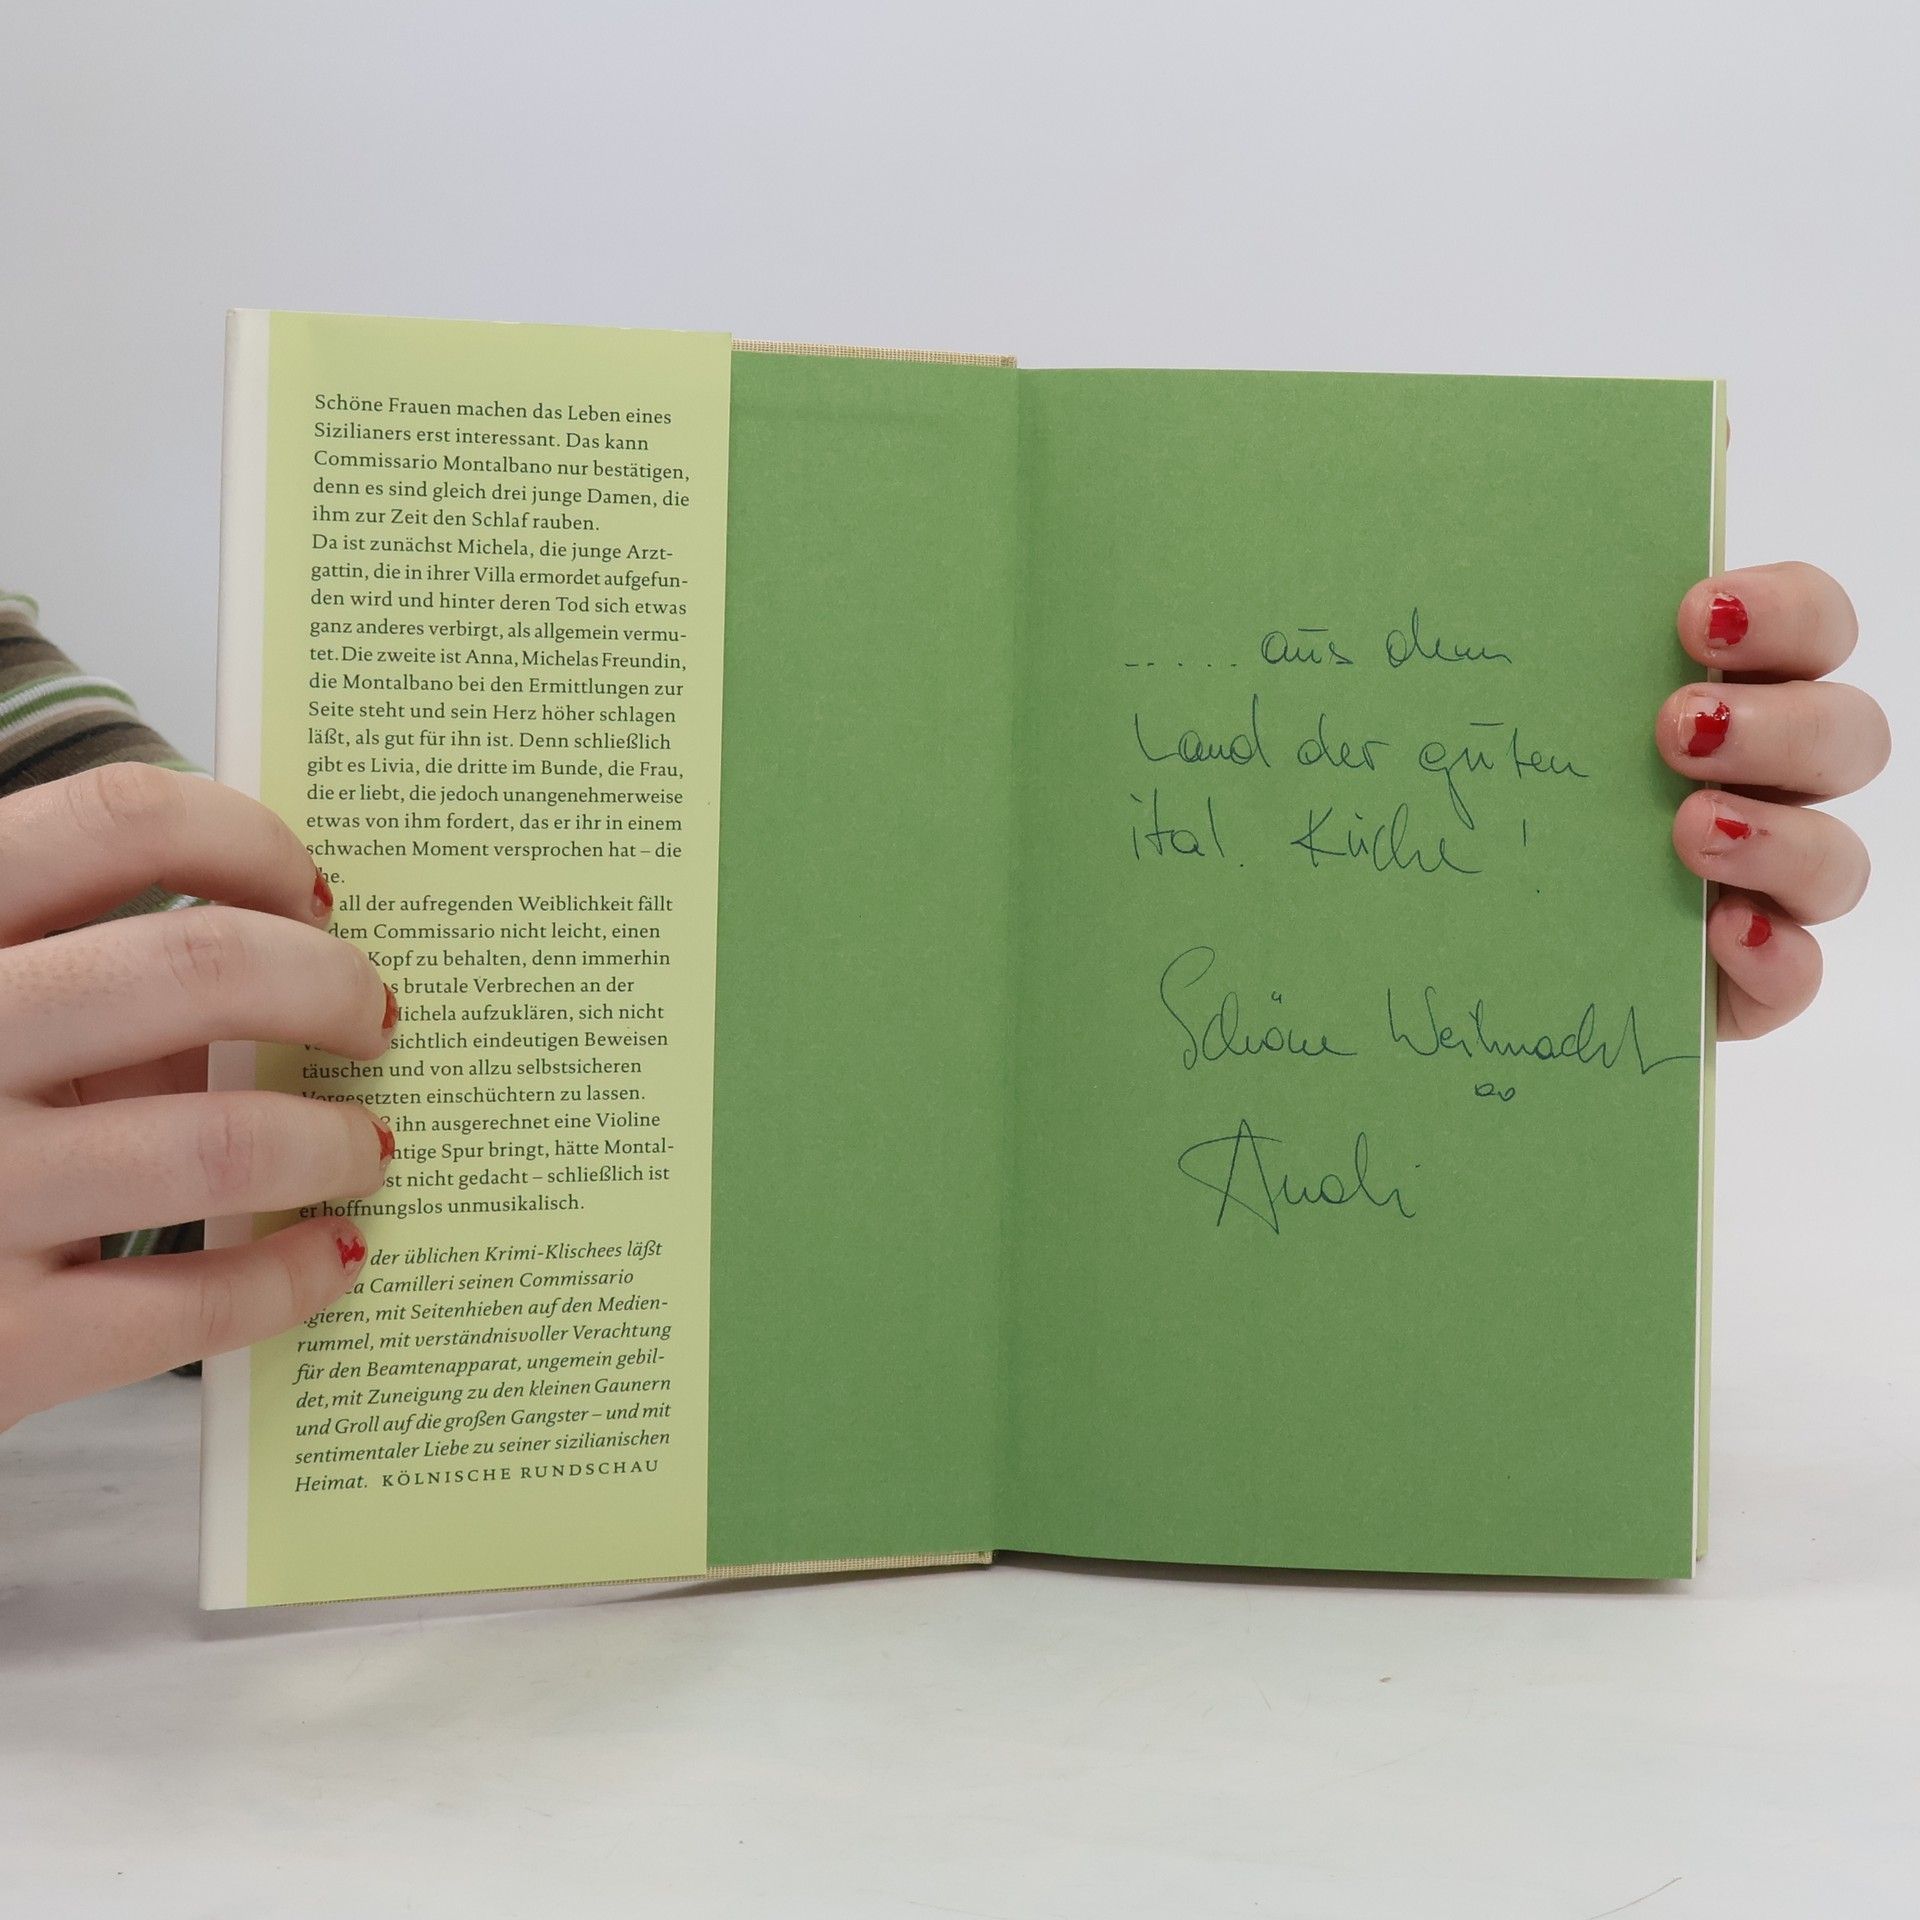 Schöne Frauen machen das Leben eines
Sizilianers erst interessant. Das kann
Commissario Montalbano nur bestätigen,
denn es sind gleich drei junge Damen, die
ihm zur Zeit den Schlaf rauben.
Da ist zunächst Michela, die junge Arzt-
gattin, die in ihrer Villa ermordet aufgefun-
den wird und hinter deren Tod sich etwas
ganz anderes verbirgt, als allgemein vermu-
tet. Die zweite ist Anna, Michelas Freundin,
die Montalbano bei den Ermittlungen zur
Seite steht und sein Herz höher schlagen
läßt, als gut für ihn ist. Denn schließlich
gibt es Livia, die dritte im Bunde, die Frau,
die er liebt, die jedoch unangenehmerweise
etwas von ihm fordert, das er ihr in einem
schwachen Moment versprochen hat – die
he.
all der aufregenden Weiblichkeit fällt
dem Commissario nicht leicht, einen
Kopf zu behalten, denn immerhin
s brutale Verbrechen an der
Michela aufzuklären, sich nicht
sichtlich eindeutigen Beweisen
täuschen und von allzu selbstsicheren
Vorgesetzten einschüchtern zu lassen.
ihn ausgerechnet eine Violine
htige Spur bringt, hätte Montal-
st nicht gedacht – schließlich ist
er hoffnungslos unmusikalisch.
der üblichen Krimi-Klischees läßt
ea Camilleri seinen Commissario
gieren, mit Seitenhieben auf den Medien-
rummel, mit verständnisvoller Verachtung
für den Beamtenapparat, ungemein gebil-
det, mit Zuneigung zu den kleinen Gaunern
und Groll auf die großen Gangster – und mit
sentimentaler Liebe zu seiner sizilianischen
Heimat. KÖLNISCHE RUNDSCHAU
..... aus dem
Land der guten
ital. Küche!
Schöne Weihnacht
Andi